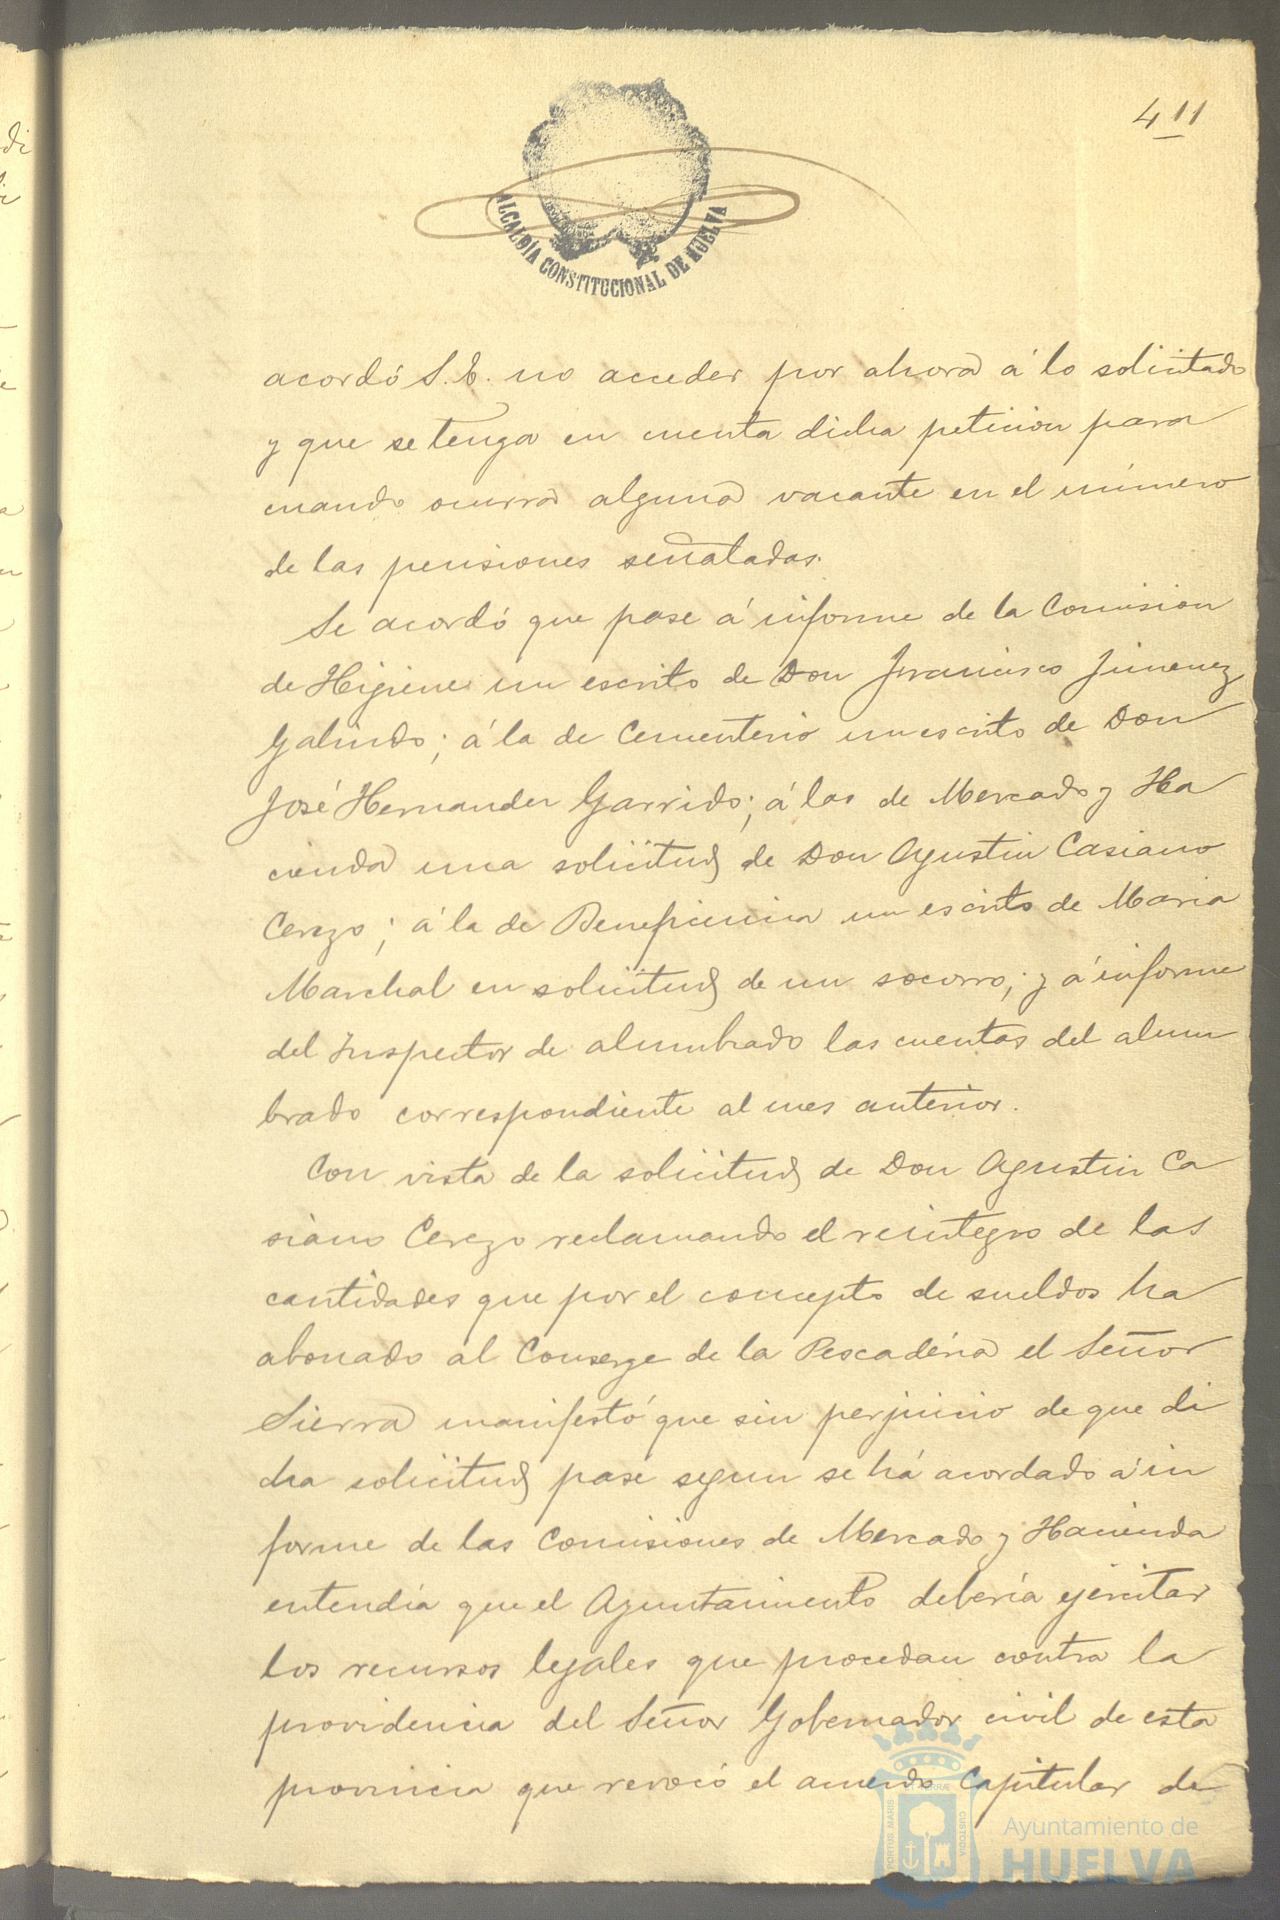 411
ALCALDÍA CONSTITUCIONAL DE HUELVA
acordó S. E. no acceder por ahora á lo solicitado
y que se tenga en cuenta dicha peticion para
cuando ocurra alguna vacante en el número
de las pensiones señaladas.
Se acordó que pase á informe de la Comision
de Higiene un escrito de Don Francisco Jimenez
Galindo; á la de Cementerio un escrito de Don
José Hernandez Garrido; á las de Mercado y Ha
cienda una solicitud de Don Agustin Casiano
Cerezo; á la de Beneficencia un escrito de Maria
Marchal en solicitud de un socorro; y á informe
del Inspector de alumbrado las cuentas del alum
brado correspondiente al mes anterior.
Con vista de la solicitud de Don Agustin Ca
siano Cerezo reclamando el reintegro de las
cantidades que por el concepto de sueldos ha
abonado al Conserge de la Pescadéria el Señor
Sierra manifestó que sin perjuicio de que di
cha solicitud pase segun se há acordado á in
forme de las Comisiones de Mercado y Hacienda
entendía que el Ayuntamiento debería ejercitar
los recursos legales que procedan contra la
providencia del Señor Gobernador civil de esta
provincia que revocó el acuerdo Capitular de
PORTUS MARIS
ET TERRÆ
CUSTODIA
Ayuntamiento de
HUELVA